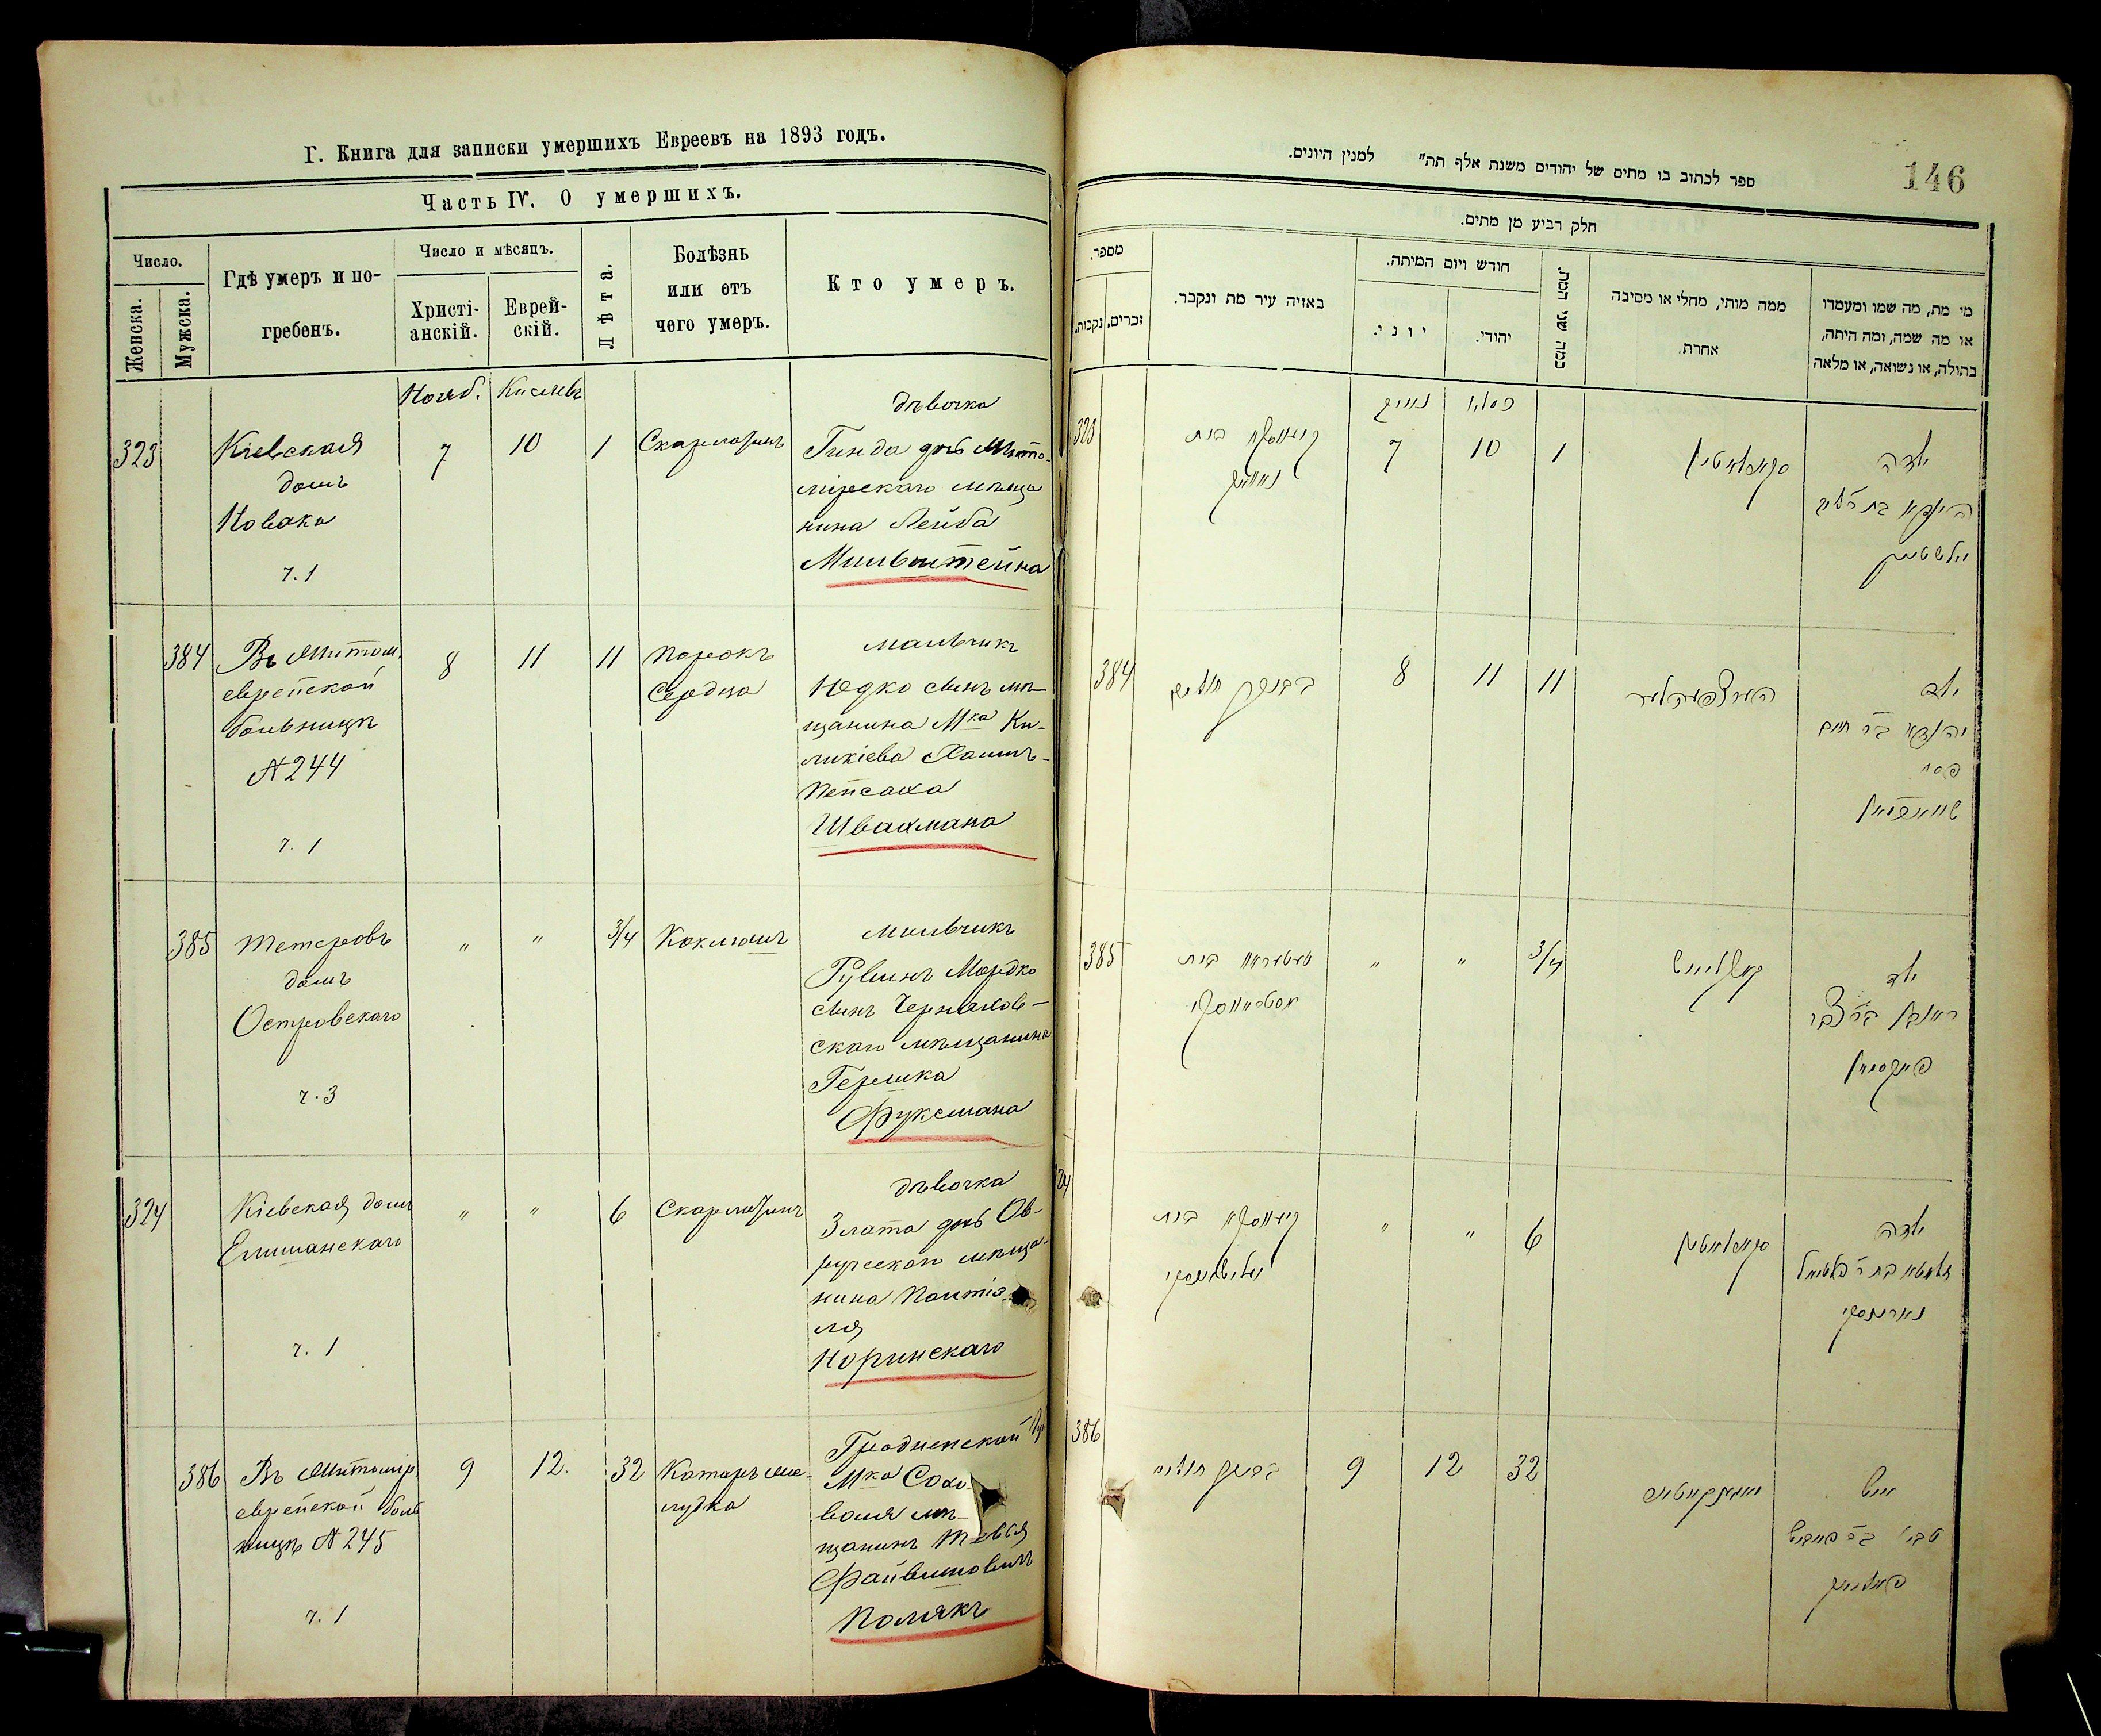 Г. Книга для записки умершихъ Евреевъ на 1893 годъ.
Часть IV. О умершихъ.
Число.
Женска.
Мужска.
Гдѣ умеръ и по-
гребенъ.
Число и мѣсяцъ.
Христі-
анскій.
Еврей-
скій.
Лѣта.
Болѣзнь
или отъ
чего умеръ.
Кто умеръ.
Нояб. Кислевъ
323
Кіевская
домъ
Новака
ч. 1
7
10
1
Скарлатинъ
дѣвочка
Гинда дчь Жито-
мірскаго мѣща
нина Лейба
Мильштейна
384
Въ Житом.
еврейской
больницѣ
№ 244
ч. 1
8
11
11
Порокъ
Сердца
мальчикъ
Юдко сынъ мѣ-
щанина Мка Ку-
ликіева Хаимъ-
Пейсаха
Швахмана
385
Тетеревъ
домъ
Островскаго
ч. 3
"
"
3/4
Коклюшъ
мальчикъ
Рувинъ Мордко
сынъ Черняхов-
скаго мѣщанина
Гершка
Фуксмана
324
Кіевская домъ
ч. 1
"
"
6
Скарлатинъ
дѣвочка
Злата дчь Ов-
ручскаго мѣща-
нина Палтіе
ля
Норинскаго
386
Въ Житомір.
еврейской боль
ницѣ № 245
ч. 1
9
12.
32
Катаръ же-
лудка
Гродненской Гу
Мка Сохо-
воля мѣ-
щанинъ Тевья
Файвишовичъ
Полякъ
146
ספר לכתוב בו מתים של יהודים משנת אלף תה" למנין היונים.
חלק רביע מן מתים.
מספר.
זכרים.
נקבות.
באזיה עיר מת ונקבר.
חודש ויום המיתה.
יוני.
יהודי.
כמה שני המת.
ממה מותי, מחלי או מסיבה
אחרת.
מי מת, מה שמו ומעמדו
או מה שמה, ומה היתה,
בתולה, או נשואה, או מלאה
323
7
10
1
סקארלאטין
ילדה
384
8
11
11
ילד
יהודא בר חיים
פסח
שוואכמאן
385
"
"
3/4
ילד
ראובן בר צבי
פוקסמאן
"
"
6
סקארלאטין
ילדה
386
9
12
32
איש